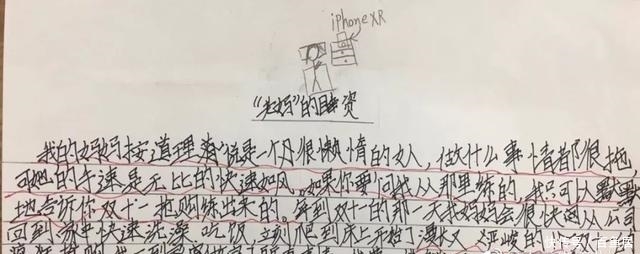 iphoneXR
“老妈”的睡资
我的妈妈按道理来说是一个很懒惰的女人，做什么事情都很拖，
可她的手速是无比的快速如风。如果你要问我从那里练的，我只可以默默
地告诉你双十一抢购练出来的。每到双十一的那一天我妈妈会很快的从公司
回到家中快速洗澡、吃饭，立刻爬到床上开始了漫长又严峻的